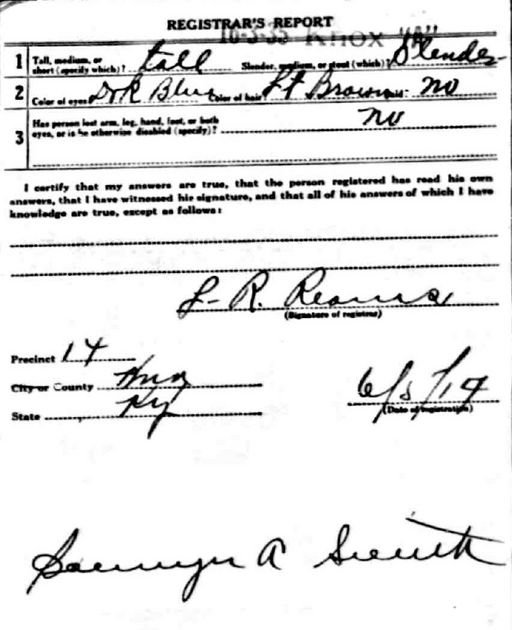 REGISTRAR'S REPORT
10-3-35 Knox "A"
1 Tall, medium, or short (specify which)? tall Slender, medium, or stout (which)? Slender
2 Color of eyes Drk Blue Color of hair? Lt Brown Bald? no
3 Has person lost arm, leg, hand, foot, or both eyes, or is he otherwise disabled (specify)? no
I certify that my answers are true, that the person registered has read his own
answers, that I have witnessed his signature, and that all of his answers of which I have
knowledge are true, except as follows:
J- R. Reams
(Signature of registrar)
Precinct 14
City or County Knox
State Ky
6/5/19
(Date of registration)
A Smith